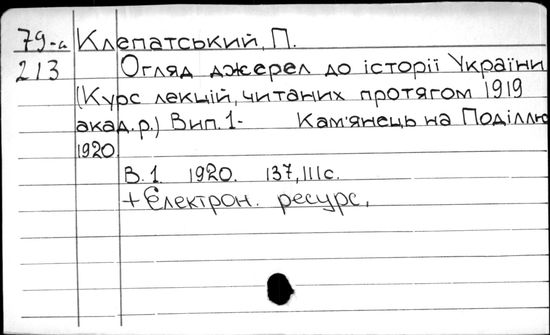 79-а Клепатський, П.
213 Огляд джерел до історії України
(Курс лекцій, читаних протягом 1919
акад. р.) Вип. 1- Кам'янець на Поділлю
1920.
В. 1. 1920. 137, III с.
+ Електрон. ресурс.